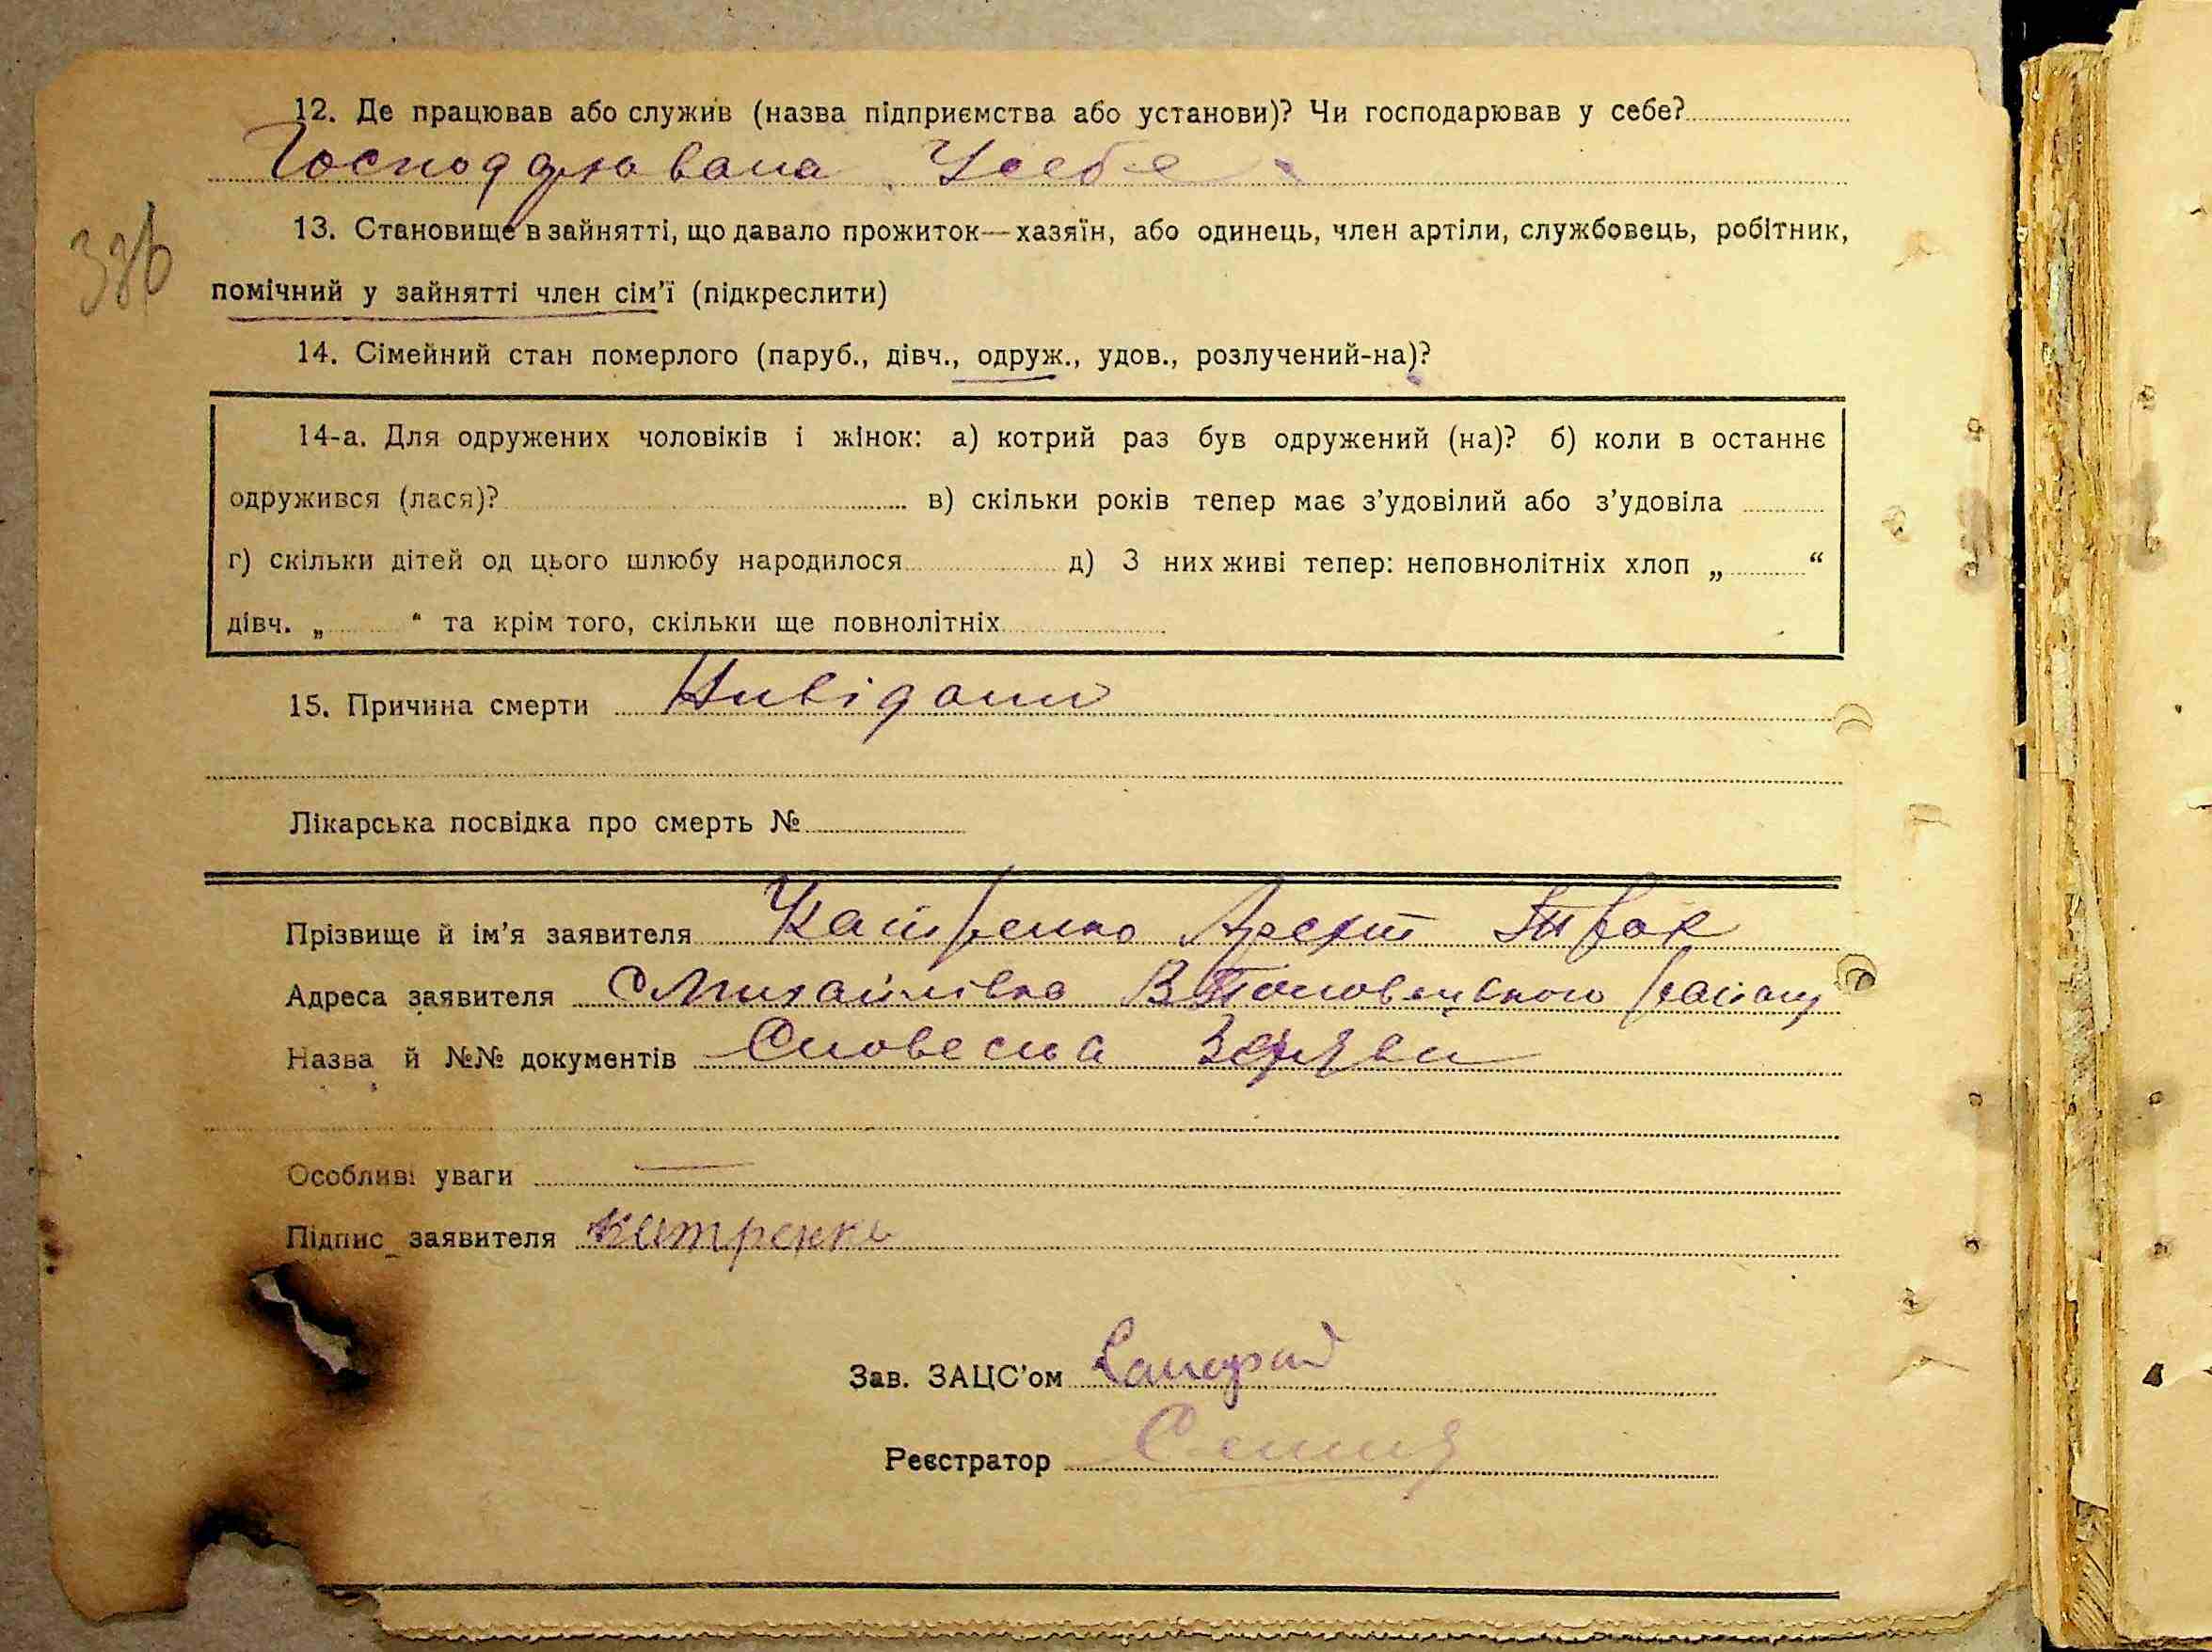 12. Де працював або служив (назва підприємства або установи)? Чи господарював у себе?
Усебе
336
13. Становище в зайнятті, що давало прожиток—хазяїн, або одинець, член артіли, службовець, робітник,
помічний у зайнятті член сім’ї (підкреслити)
14. Сімейний стан померлого (паруб., дівч., одруж., удов., розлучений-на)?
14-а. Для одружених чоловіків і жінок: а) котрий раз був одружений (на)? б) коли в останнє
одружився (лася)? в) скільки років тепер має з’удовілий або з’удовіла
г) скільки дітей од цього шлюбу народилося д) З них живі тепер: неповнолітніх хлоп „ “
дівч. „ “ та крім того, скільки ще повнолітніх
15. Причина смерти
Лікарська посвідка про смерть №
Прізвище й ім’я заявителя Катренко
Адреса заявителя С Михайлівка району
Назва й №№ документів Словесна
Особливі уваги
Підпис заявителя Катренко
Зав. ЗАЦС’ом
Реєстратор